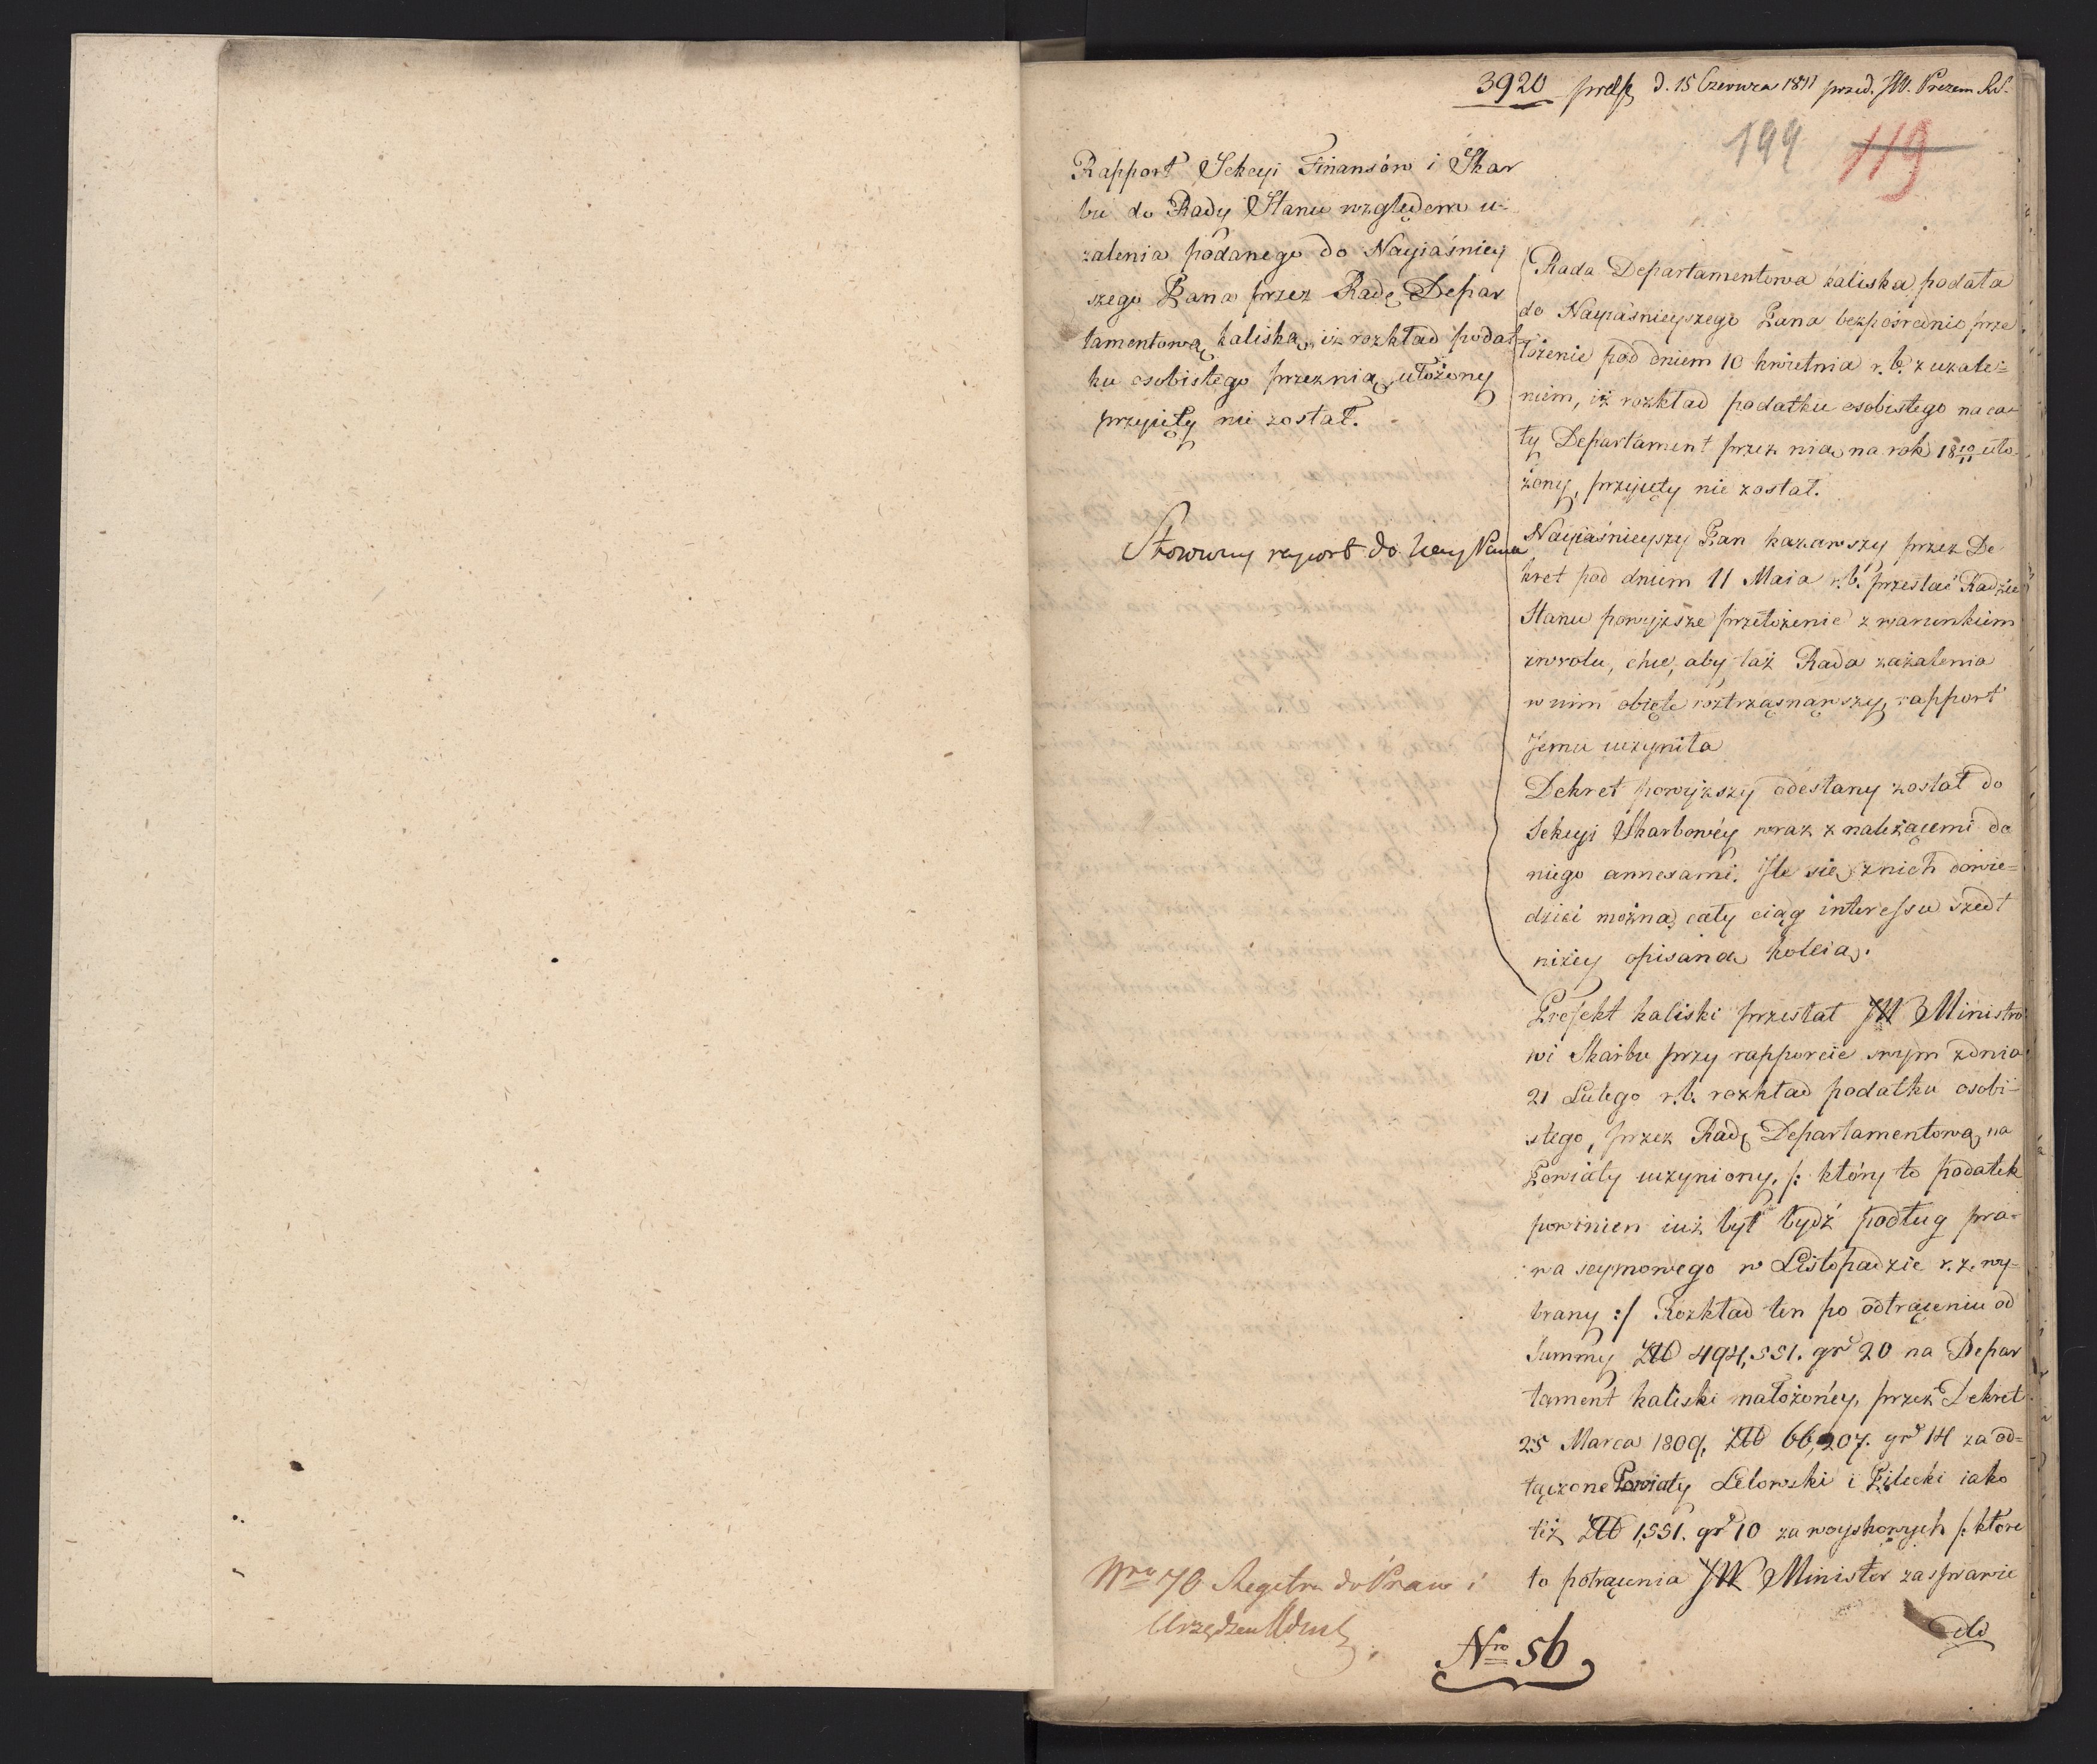 3920 d. 15 Czerwca 1811 przed. JW. Prezem R.S.
199 119
Rapport Sekcyi Finansów i Skar
bu do Rady Stanu względem u-
żalenia podanego do Nayiaśniey
szego Pana przez Radę Depar
tamentową kaliską, iż rozkład podat-
ku osobistego przez nią ułożony
przyięty nie został.
Stosowny raport do Nay Pana
Rada Departamentowa kaliska podała
do Nayiaśnieyszego Pana bezpośrednio prze
łożenie pod dniem 10 kwietnia r. b. z użale=
niem, iż rozkład podatku osobistego na ca-
ły Departament przez nią na rok 18 10/11 uło
żony, przyięty nie został.
Nayiaśnieyszy Pan kazawszy przez De
kret pod dniem 11 Maia r.b. przesłać Radzie
Stanu powyższe przełożenie z warunkiem
zwrotu, chce, aby taż Rada zażalenia
w nim obięte roztrząsnąwszy, rapport
Jemu uczyniła
Dekret powyższy odesłany został do
Sekcyi Skarbowéy wraz z należącemi do
niego annexami. Ile się z nich dowie=
dzieć można, cały ciąg interessu szedł
niżey opisaną koleią.
Prefekt kaliski przesłał JW Ministro
wi Skarbu przy rapporcie swym z dnia
21 Lutego r.b. rozkład podatku osobi-
stego, przez Radę Departamentową na
Powiaty uczyniony, /: który to podatek
powinien iuż był bydź podług pra-
wa seymowego w Listopadzie r. z. wy-
brany :/ Rozkład ten po odtrąceniu od
Summy Złł 494,551. gr 20 na Depar
tament kaliski nałożonéy, przez Dekret
25 Marca 1809, Złł 66,207. gr 14 za od=
łączone Powiaty Lelowski i Pilecki iako
też Złł 1,551. gr 10 za woyskowych /: które
to potrącenia JW Minister za sprawie
dli
Nro 70 Regstra do Praw i
Urządzeń
Nro 56